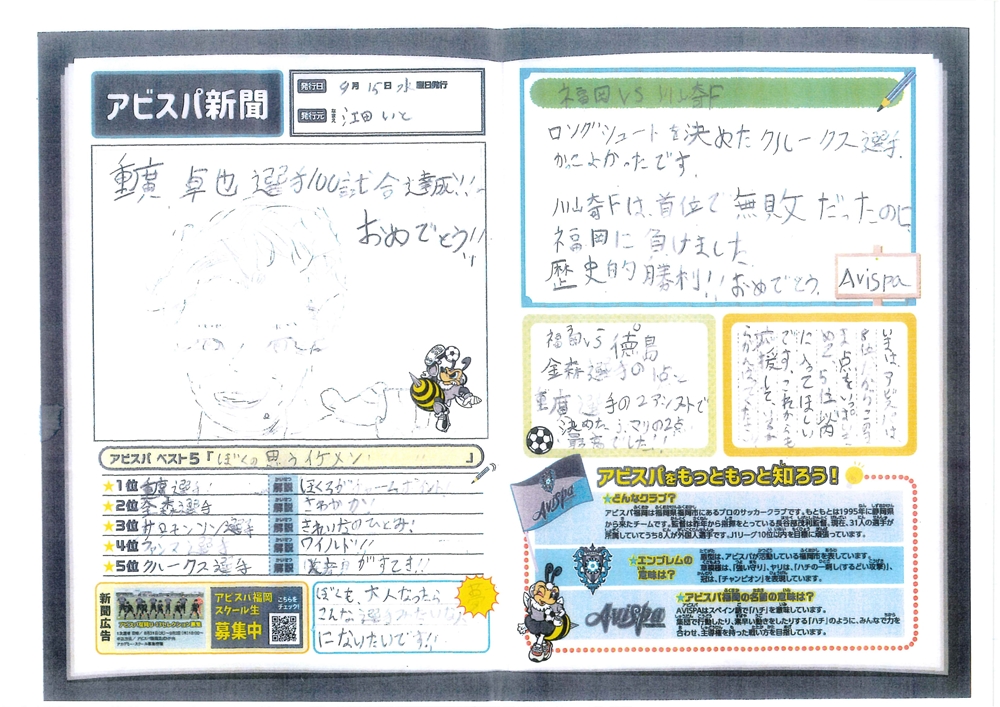 アビスパ新聞
発行日 9月15日水曜日発行
発行元 江田 いと
重廣 卓也 選手100試合達成!!
おめでとう!!
アビスパ ベスト5「ぼくの思うイケメン」
★1位 重廣選手! 解説 ほくろがチャームポイント!
★2位 金森選手 解説 さわやか!
★3位 サロモンソン選手 解説 きれいなひとみ!
★4位 選手 解説 ワイルド!!
★5位 クルークス選手 解説 がすてき!!
新聞広告
アビスパ福岡
スクール生
募集中
こちらをチェック!
ぼくも、大人なったら
こんな選手みたいな
になりたいです!!
福岡VS川崎F
ロングシュートを決めたクルークス選手、
かっこよかったです。
川崎Fは、首位で無敗だったのに
福岡に負けました
歴史的勝利!! おめでとう。
Avispa
福岡VS徳島
金森選手の1点と
重廣選手の2アシストで
決めたJ.マリの2点
最高でした!!
いまは、アビスパは
8位
5位以内
に入ってほしい
です。これからも
応援して
アビスパをもっともっと知ろう!
★どんなクラブ?
アビスパ福岡は福岡県福岡市にあるプロのサッカークラブです。もともとは1995年に静岡県
から来たチームです。監督は昨年から指揮をとっている長谷部茂利監督。現在、31人の選手が
所属していてうち8人が外国人選手です。J1リーグ10位以内を目標に頑張っています。
★エンブレムの
意味は?
扇型は、アビスパが活動している福岡市を表しています。
三日月は、「強い守り」、ヤリは、「ハチの一刺し(するどい攻撃)、
冠は、「チャンピオン」を表現しています。
★アビスパ福岡の名前の意味は?
Avispa
AVISPAはスペイン語で「ハチ」を意味しています。
集団で行動したり、素早い動きをしたりする「ハチ」のように、みんなで力を
合わせ、主導権を持った戦い方を目指しています。